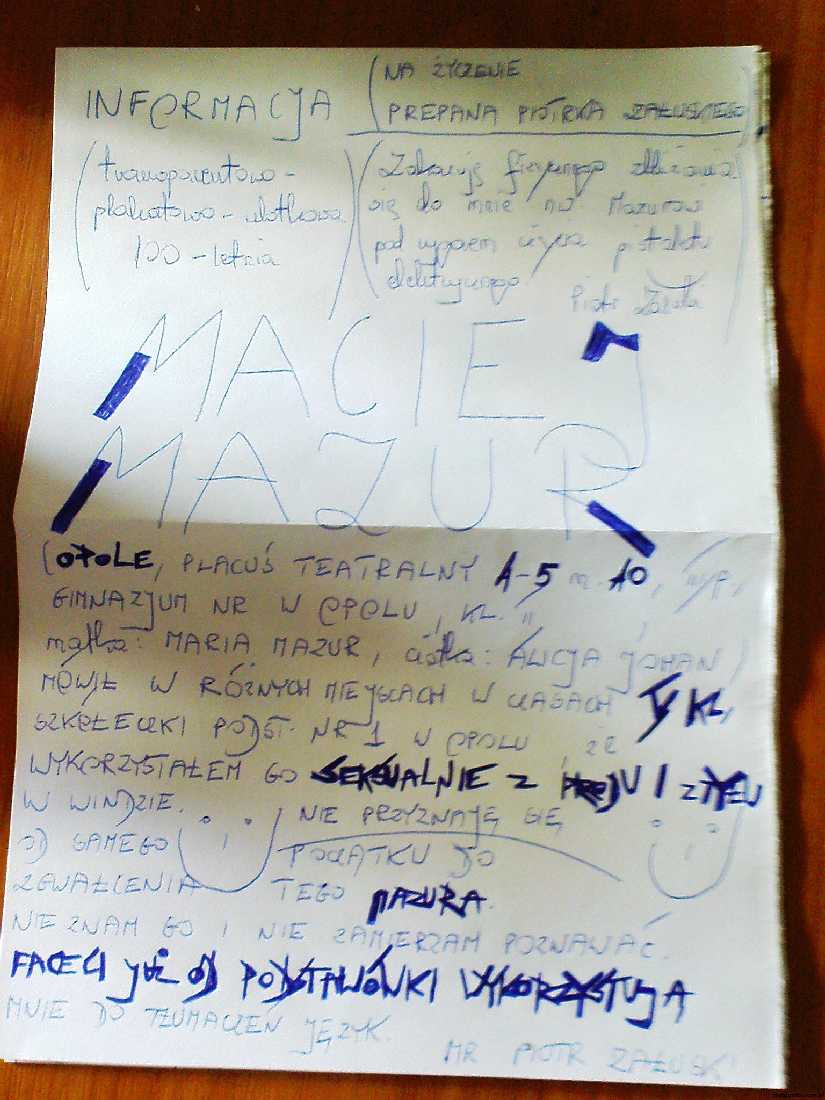 INFORMACJA
(NA ŻYCZENIE
PREPANA PIOTRKA ZAŁUSKIEGO)
(transparentowo -
plakatowo - ulotkowa
100 - letnia
(Zakazuję fizycznego zbliżania
się do mnie nw. Mazurowi
pod użycia pistoletu
elektrycznego.
Piotr Załuski)
MACIEJ
MAZUR
(OPOLE, PLACUŚ TEATRALNY A-5 m. 10,
GIMNAZJUM NR W OPOLU, KL. " ,
matka: MARIA MAZUR, ciotka: ALICJA JOHAN)
MÓWIŁ W RÓŻNYCH MIEJSCACH W CZASACH IV KL,
SZKÓŁECZKI PODST. NR 1 W OPOLU ŻE
WYKORZYSTAŁEM GO SEKSUALNIE Z PRZODU I Z TYŁU
W WINDZIE. NIE PRZYZNAJĘ SIĘ
OD SAMEGO POCZĄTKU DO
ZGWAŁCENIA TEGO MAZURA.
NIE ZNAM GO I NIE ZAMIERZAM POZNAWAĆ.
FACECI JUŻ OD PODSTAWÓWKI WYKORZYSTUJĄ
MNIE DO TŁUMACZEŃ JĘZYK.
MR PIOTR ZAŁUSKI